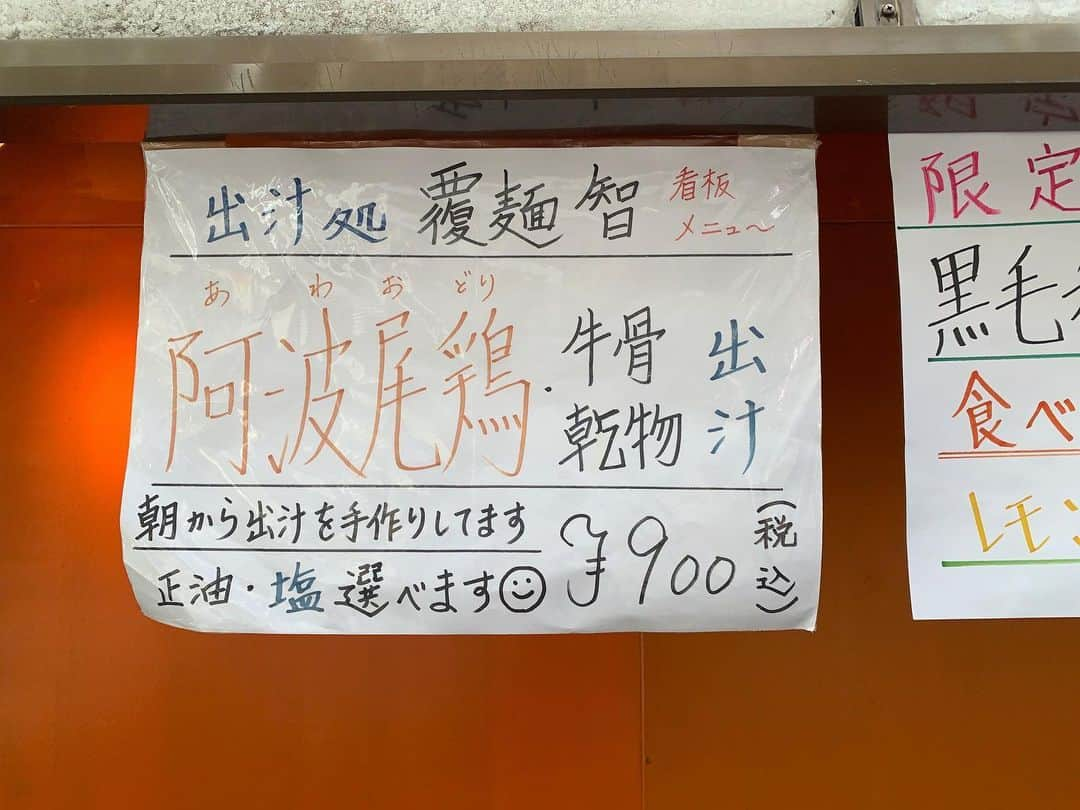 出汁処 覆麺智 看板
メニュ〜
あわおどり
阿波尾鶏・牛骨
乾物
出汁
朝から出汁を手作りしてます
正油・塩選べます
¥900
(税込)
限定
黒毛
食べ
レモン